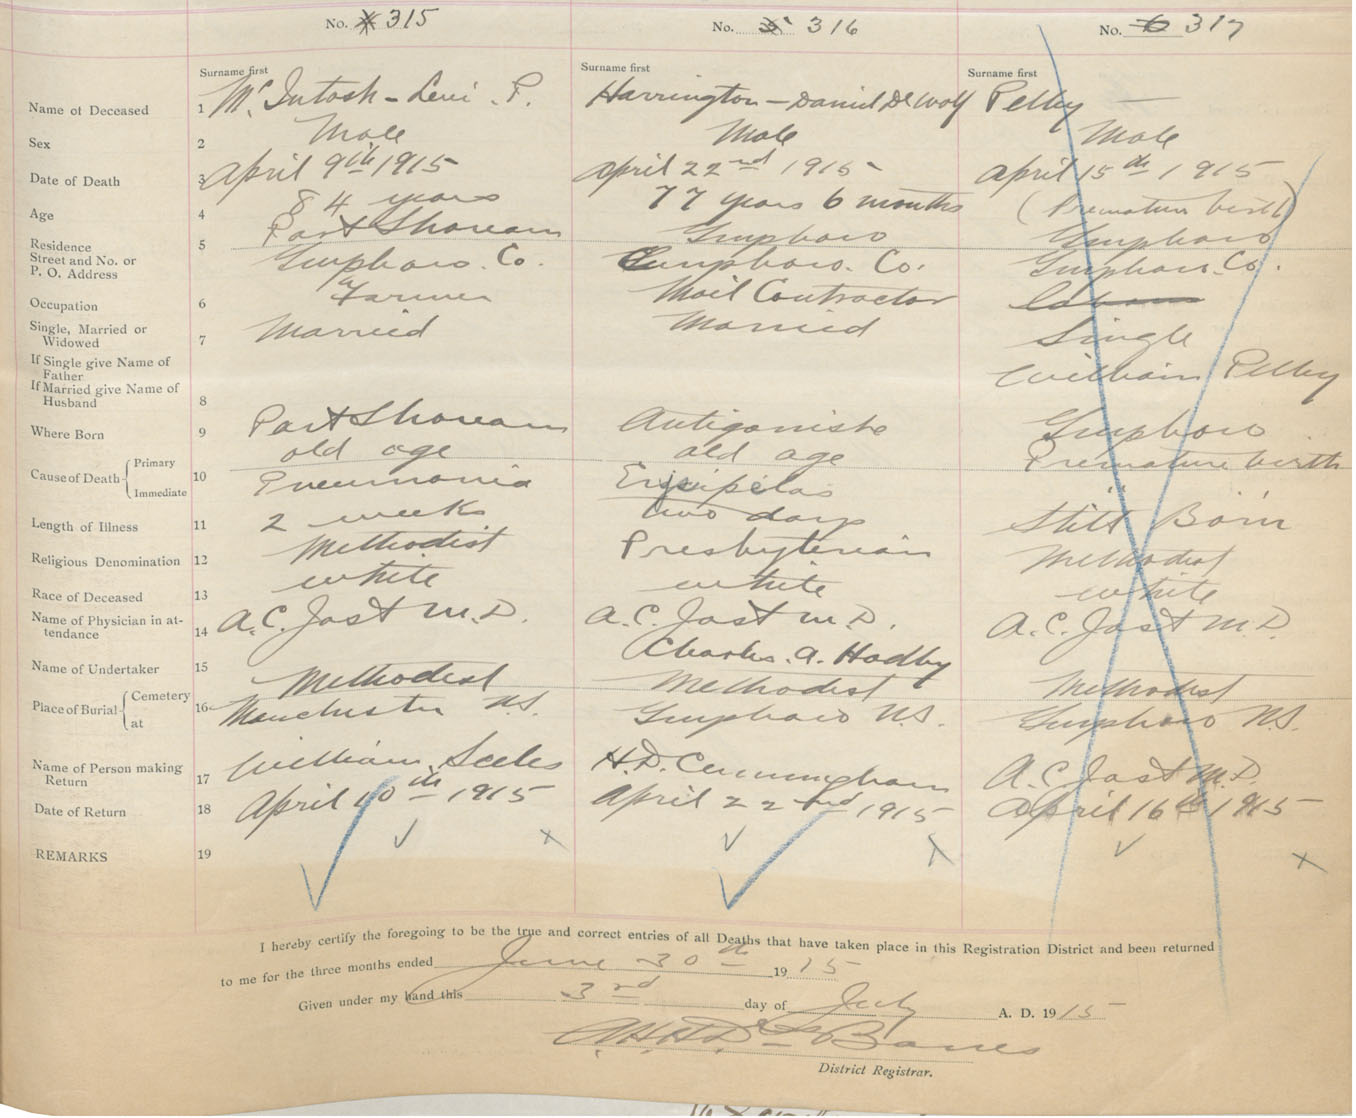 No. 315 No. 316 No. 317
Surname first Surname first Surname first
Name of Deceased 1 McIntosh - Levi. P. Harrington - Daniel DeWolf Pelby
Sex 2 Male Male Male
Date of Death 3 April 9th 1915 April 22nd 1915 April 15th 1915
Age 4 84 years 77 years 6 months (Premature birth)
Residence 5 Port Shoream Guysboro Guysboro
Street and No. or
P. O. Address Guysboro. Co. Guysboro. Co. Guysboro. Co.
Occupation 6 Farmer Mail Contractor
Single, Married or
Widowed 7 Married Married Single
If Single give Name of
Father William Pelby
If Married give Name of
Husband 8
Where Born 9 Port Shoream Antigonishe Guysboro
Cause of Death Primary 10 old age old age Premature birth
Immediate Pneumonia Erysipelas
Length of Illness 11 2 weeks two days Still Born
Religious Denomination 12 Methodist Presbyterian Methodist
Race of Deceased 13 white white white
Name of Physician in at-
tendance 14 A.C. Jost M.D. A.C. Jost M.D. A.C. Jost M.D.
Name of Undertaker 15 Charles. A. Hadley
Place of Burial Cemetery 16 Methodist Methodist Methodist
at Manchester N.S. Guysboro N.S. Guysboro N.S.
Name of Person making
Return 17 William H.D. Cunningham A.C. Jost M.D.
Date of Return 18 April 10th 1915 April 22nd 1915 April 16th 1915
REMARKS 19
I hereby certify the foregoing to be the true and correct entries of all Deaths that have taken place in this Registration District and been returned
to me for the three months ended June 30th 1915
Given under my hand this 3rd day of July A. D. 1915
District Registrar.